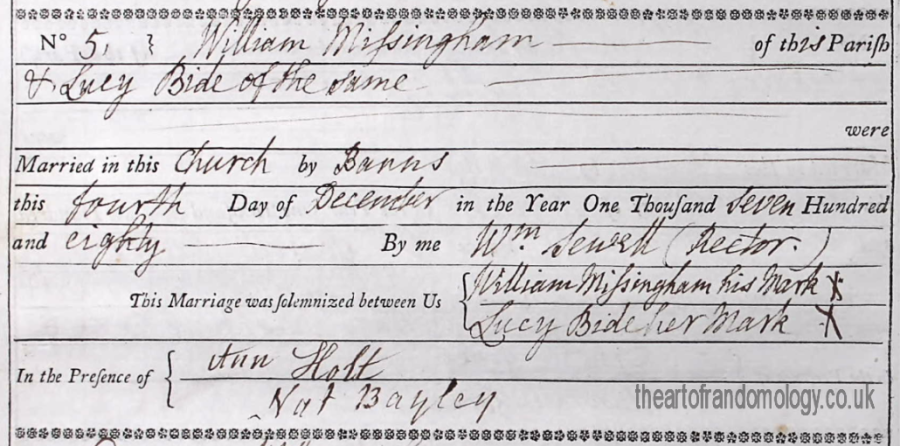 No 5, } William Miſsingham of this Pariſh
& Lucy Bide of the same
were
Married in this Church by Banns
this fourth Day of December in the Year One Thouſand seven Hundred
and eighty By me Wm Sewell (Rector.)
This Marriage was ſolemnized between Us { William Miſsingham his Mark X
Lucy Bide her Mark X
In the Preſence of { Ann Holt
Nat Bayley
theartofrandomology.co.uk